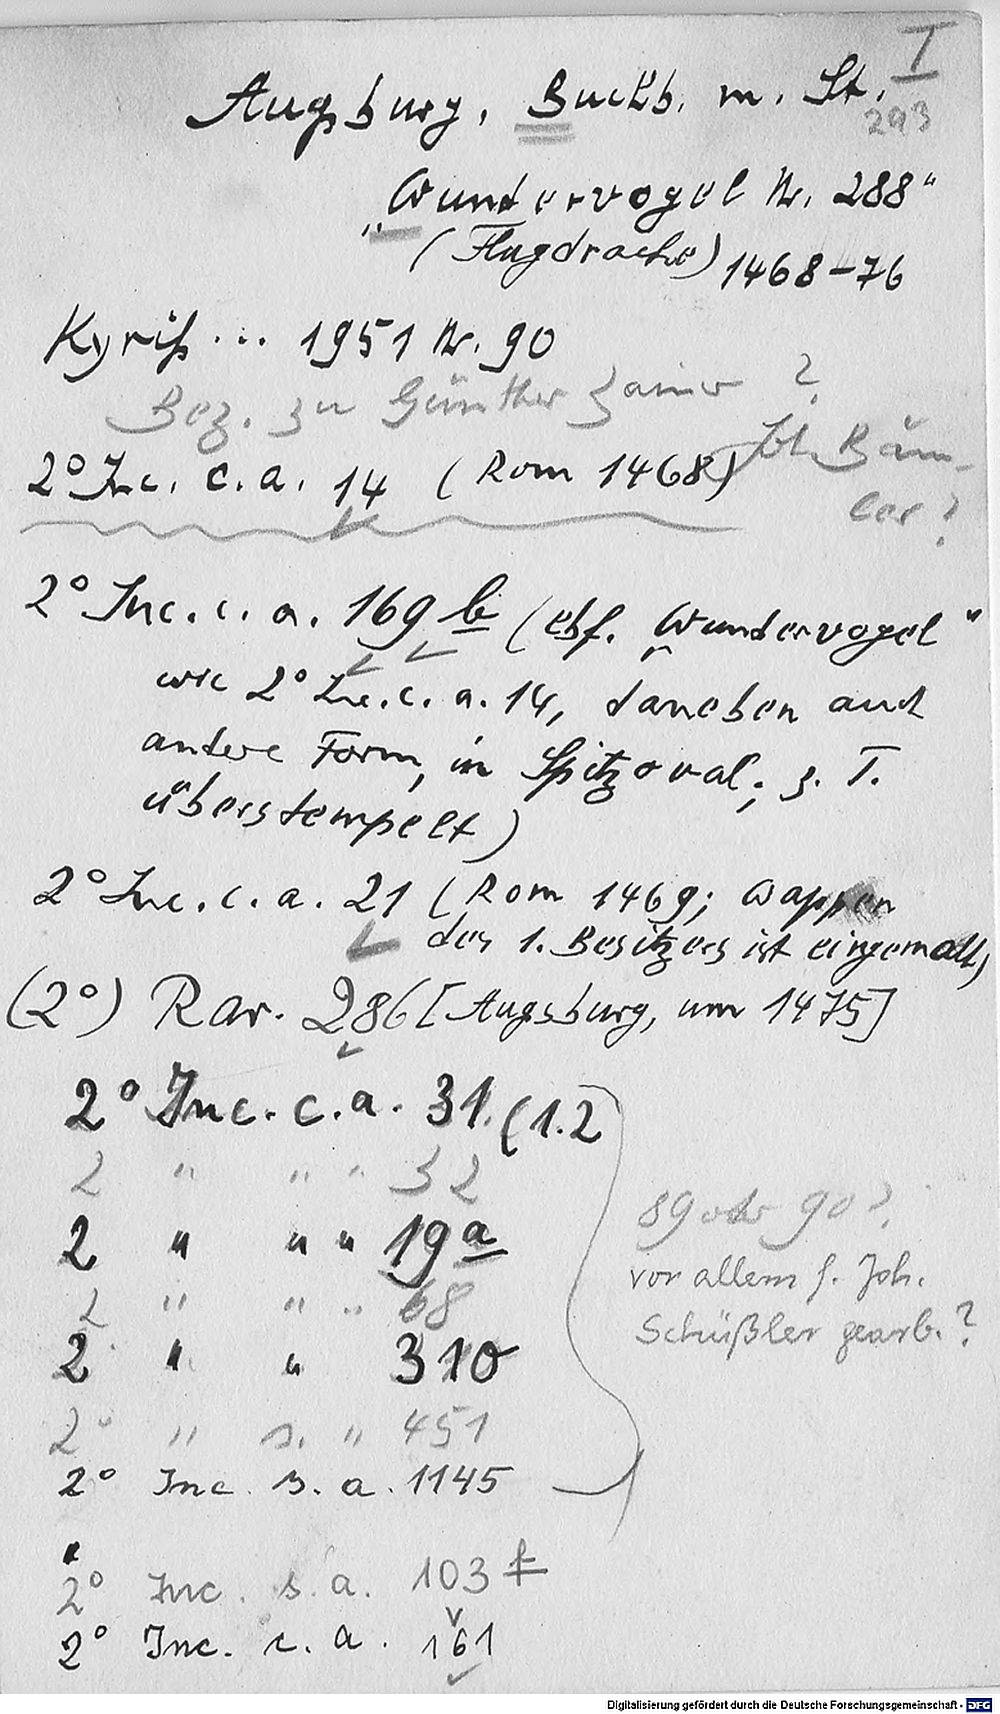 I
Augsburg, Buchb. m. St.
293
„Wundervogel Nr. 288“
(Flugdrache) 1468–76
Kyriß... 1951 Nr. 90
Bez. zu Günther Zainer ?
Joh. Bäm-
ler?
2° Inc. c. a. 14 (Rom 1468)
2° Inc. c. a. 169 b (ebf. „Wundervogel“
wie 2° Inc. c. a. 14, daneben auch
andere Form, in Spitzoval; z. T.
überstempelt)
2° Inc. c. a. 21 (Rom 1469; Wappen
des 1. Besitzers ist eingemalt)
(2°) Rar. 286 [Augsburg, um 1475]
2° Inc. c. a. 31. (1.2
2 " " " 32
2 " " " 19 a
2 " " " 68
2 " " 310
2° " s. " 451
2° Inc. s. a. 1145
89 oder 90?
vor allem f. Joh.
Schüßler gearb.?
2° Inc. s. a. 103 f
2° Inc. c. a. 161
Digitalisierung gefördert durch die Deutsche Forschungsgemeinschaft - DFG